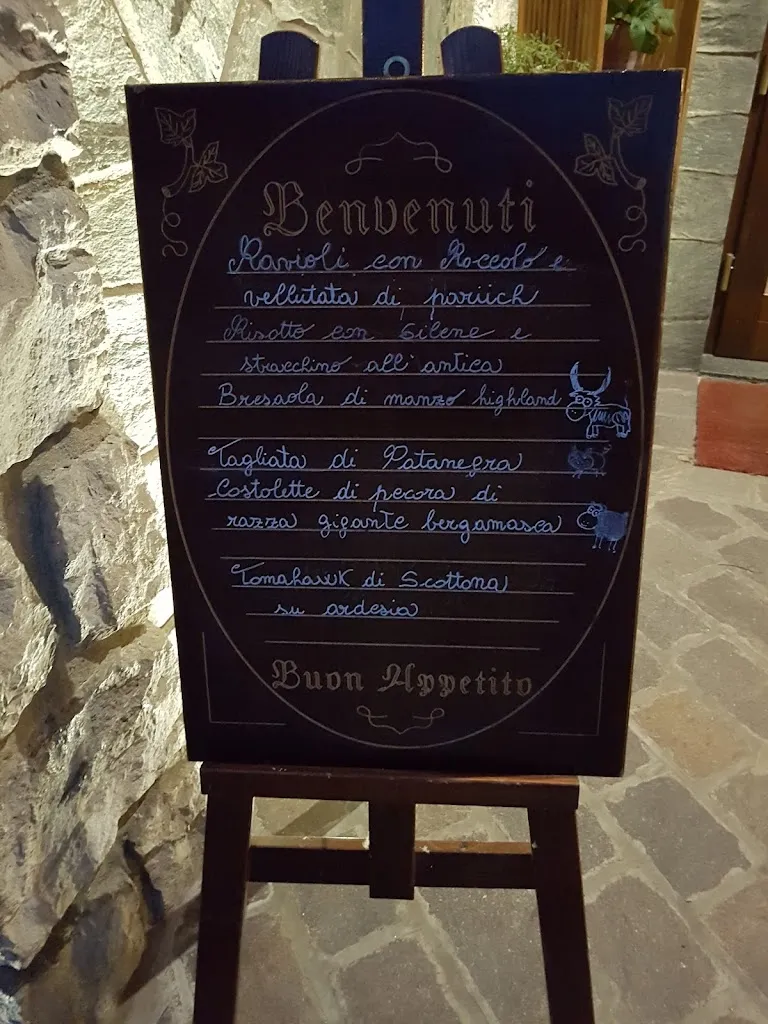 Benvenuti
Ravioli con Roccolo e
vellutata di paruch
Risotto con Silene e
stracchino all'antica
Bresaola di manzo highland
Tagliata di Patanegra
Costolette di pecora di
razza gigante bergamasca
Tomahawk di Scottona
su ardesia
Buon Appetito